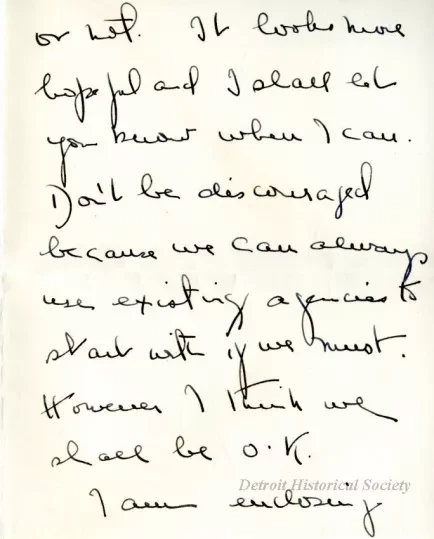 or not. It looks more
hopeful and I shall let
you know when I can.
Don't be discouraged
because we can always
use existing agencies to
start with if we must.
However I think we
shall be O.K.
Detroit Historical Society
I am enclosing